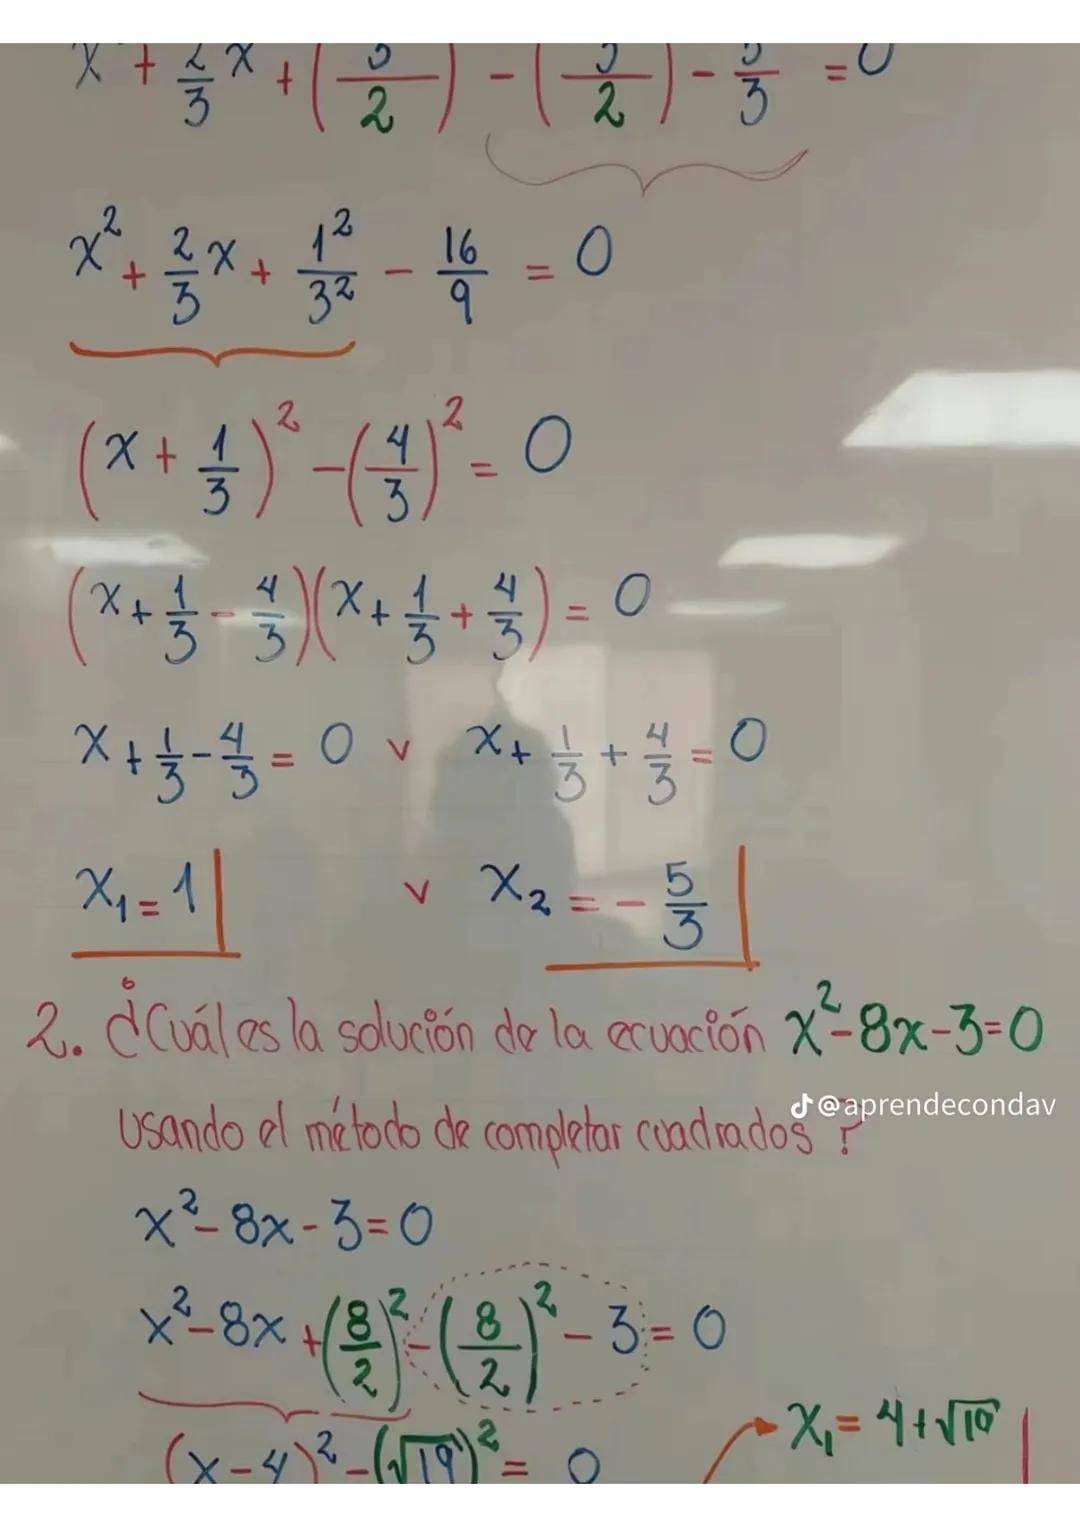 x + 2/3 x + ( /2) - ( /2) - 5/3 = 0
x² + 2/3 x + 1²/3² - 16/9 = 0
(x + 1/3)² - (4/3)² = 0
(x + 1/3 - 4/3)(x + 1/3 + 4/3) = 0
x + 1/3 - 4/3 = 0 v x + 1/3 + 4/3 = 0
x₁ = 1 v x₂ = - 5/3
2. ¿Cuál es la solución de la ecuación x²-8x-3=0
@aprendecondav
Usando el método de completar cuadrados?
x² - 8x - 3 = 0
x² - 8x + (8/2)² - (8/2)² - 3 = 0
(x - 4)² - (√19)² = 0
x₁ = 4 + √19